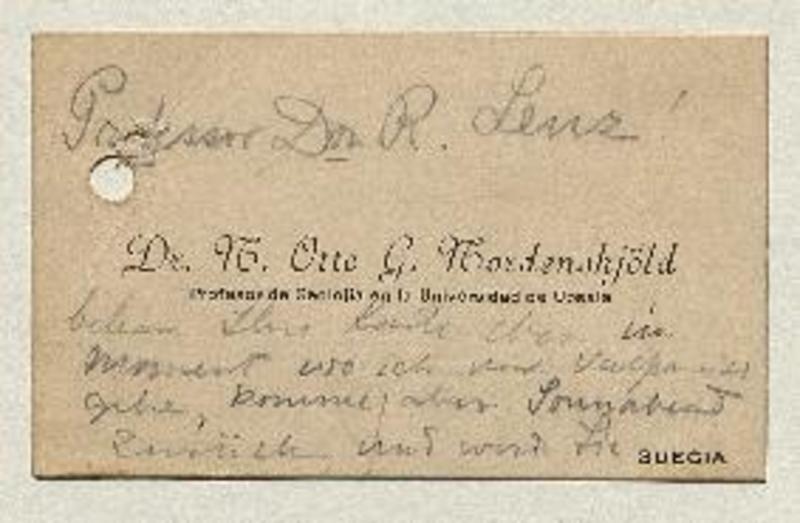 Professor Dr. R. Lenz!
Dr. N. Otto G. Nordenskjöld
Profesor de Geolojia en la Universidad de Upsala
Ihre Karte eben im
Moment wo ich nach Valparaiso
gehe, komme aber Sonnabend
zurück und werd Sie
SUECIA